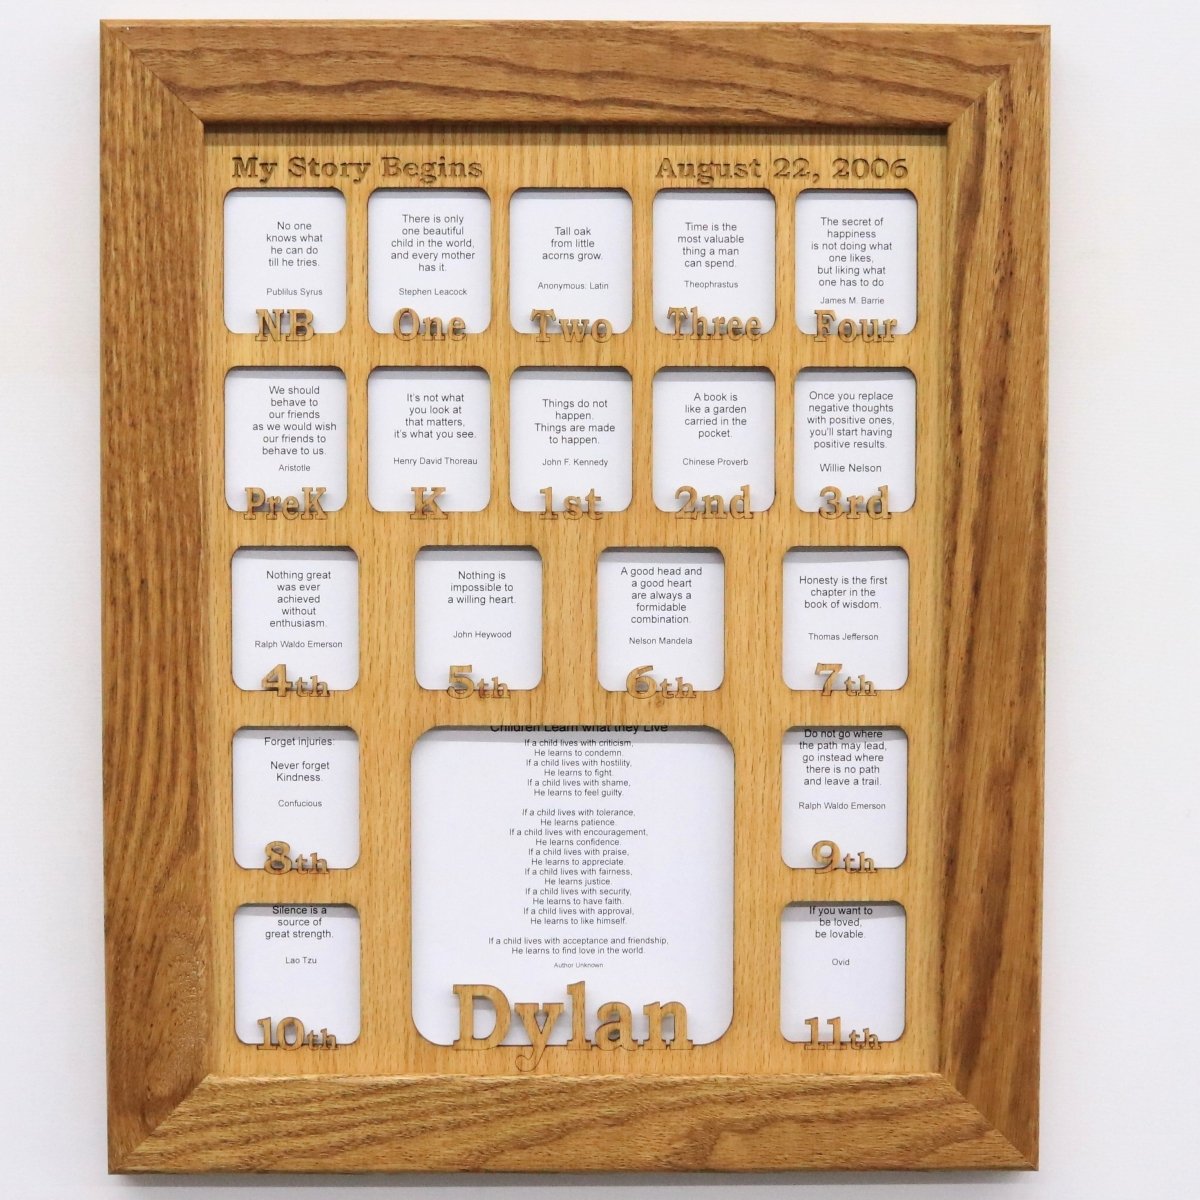 My Story Begins
August 22, 2006
No one
knows what
he can do
till he tries.
Publilus Syrus
NB
There is only
one beautiful
child in the world,
and every mother
has it.
Stephen Leacock
One
Tall oak
from little
acorns grow.
Anonymous. Latin
Two
Time is the
most valuable
thing a man
can spend.
Theophrastus
Three
The secret of
happiness
is not doing what
one likes,
but liking what
one has to do
James M. Barrie
Four
We should
behave to
our friends
as we would wish
our friends to
behave to us.
Aristotle
PreK
It's not what
you look at
that matters,
it's what you see.
Henry David Thoreau
K
Things do not
happen.
Things are made
to happen.
John F. Kennedy
1st
A book is
like a garden
carried in the
pocket.
Chinese Proverb
2nd
Once you replace
negative thoughts
with positive ones,
you'll start having
positive results.
Willie Nelson
3rd
Nothing great
was ever
achieved
without
enthusiasm.
Ralph Waldo Emerson
4th
Nothing is
impossible to
a willing heart.
John Heywood
5th
A good head and
a good heart
are always a
formidable
combination.
Nelson Mandela
6th
Honesty is the first
chapter in the
book of wisdom.
Thomas Jefferson
7th
Forget injuries:
Never forget
Kindness.
Confucious
8th
Children Learn what they Live
If a child lives with criticism,
He learns to condemn.
If a child lives with hostility,
He learns to fight.
If a child lives with shame,
He learns to feel guilty.
If a child lives with tolerance,
He learns patience.
If a child lives with encouragement,
He learns confidence.
If a child lives with praise,
He learns to appreciate.
If a child lives with fairness,
He learns justice.
If a child lives with security,
He learns to have faith.
If a child lives with approval,
He learns to like himself.
If a child lives with acceptance and friendship,
He learns to find love in the world.
Author Unknown
Dylan
Do not go where
the path may lead,
go instead where
there is no path
and leave a trail.
Ralph Waldo Emerson
9th
Silence is a
source of
great strength.
Lao Tzu
10th
If you want to
be loved,
be lovable.
Ovid
11th